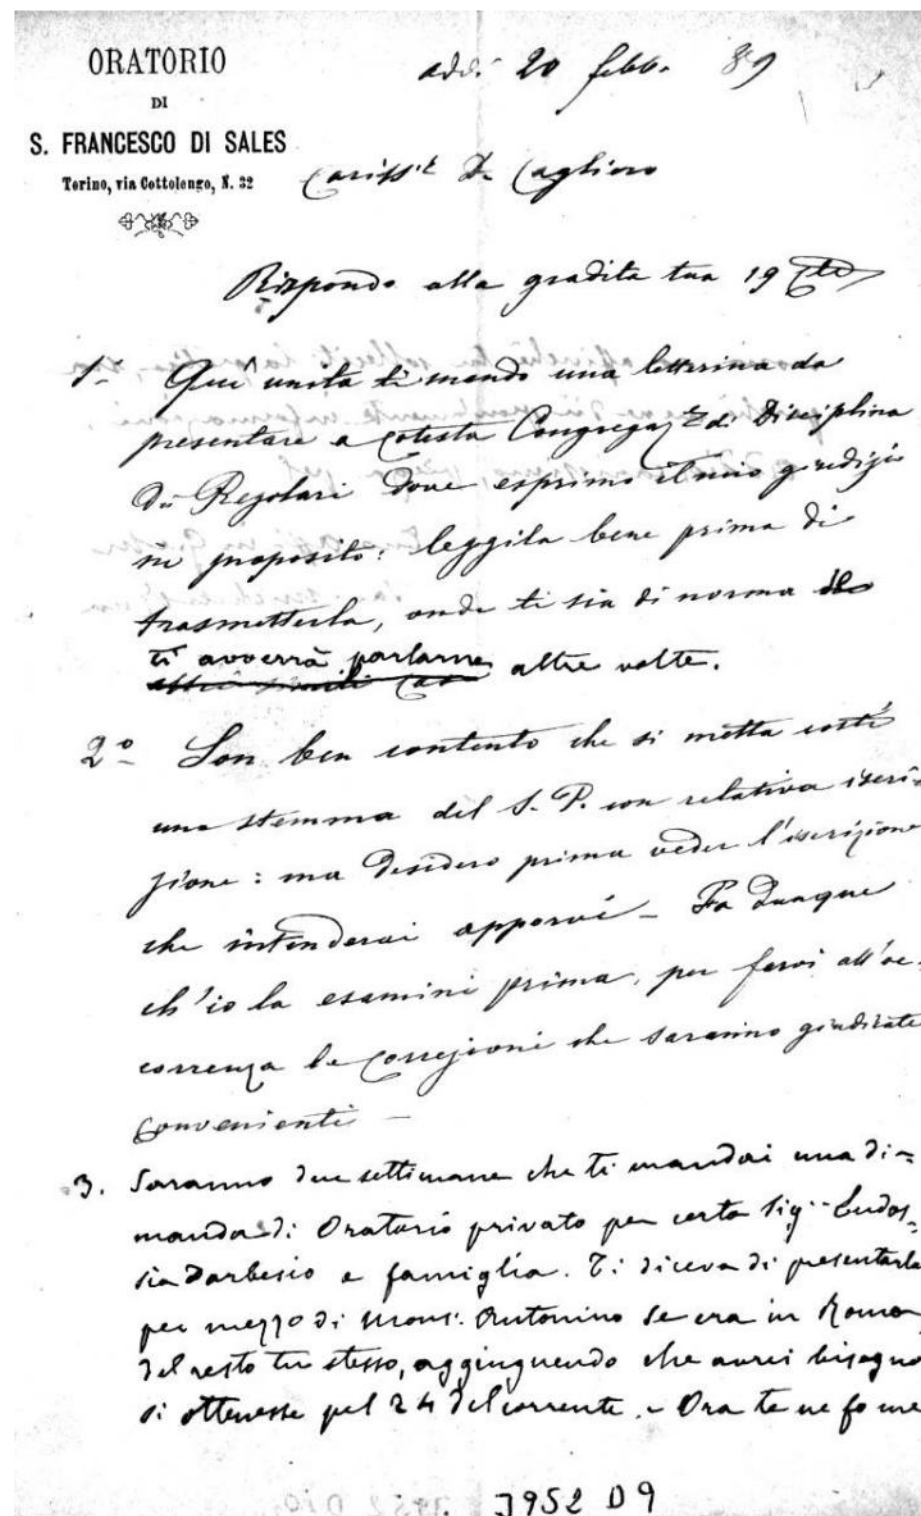 ORATORIO
DI
S. FRANCESCO DI SALES
Torino, via Cottolengo, N. 32
addì 20 febb. 89
Cariss. D. Cagliero
Rispondo alla gradita tua 19
1° Quì unita ti mando una letterina da
presentare a cotesta Congregaz. di Disciplina
Dei Regolari dove esprimo il mio giudizio
in proposito: leggila bene prima di
trasmetterla, onde ti sia di norma se
ti avverrà parlarne altre volte.
2° Son ben contento che si metta costì
uno stemma del S. P. con relativa iscri-
zione: ma desidero prima veder l'iscrizione
che intenderai apporvi - Fa dunque
ch'io la esamini prima, per farvi all'oc-
correnza le correzioni che saranno giudicate
convenienti -
3. Saranno due settimane che ti mandai una di-
manda di Oratorio privato per certa Sig. Eudos-
sia Darbesio e famiglia. Ti diceva di presentarla
per mezzo di Mons. Antonino se era in Roma
del resto tu stesso, aggiungendo che aurei bisogno
si ottenesse pel 24 del corrente. - Ora te ne fo me
3952 D9